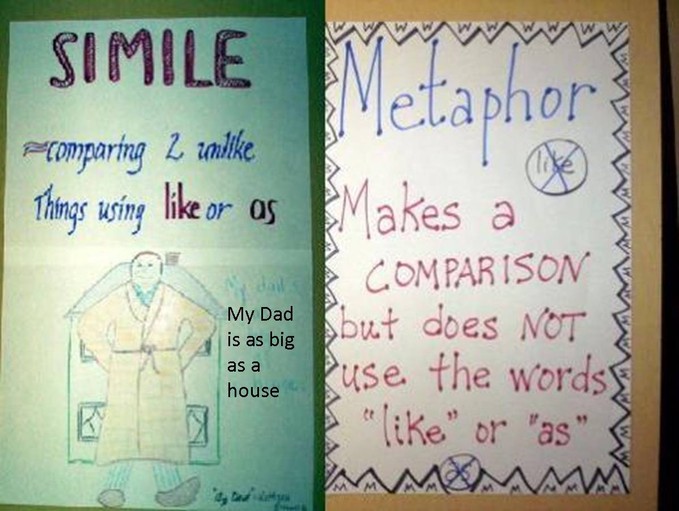 SIMILE
comparing 2 unlike
Things using like or as
My Dad
is as big
as a
house
Metaphor
like
Makes a
COMPARISON
but does NOT
use the words
"like" or "as"
as